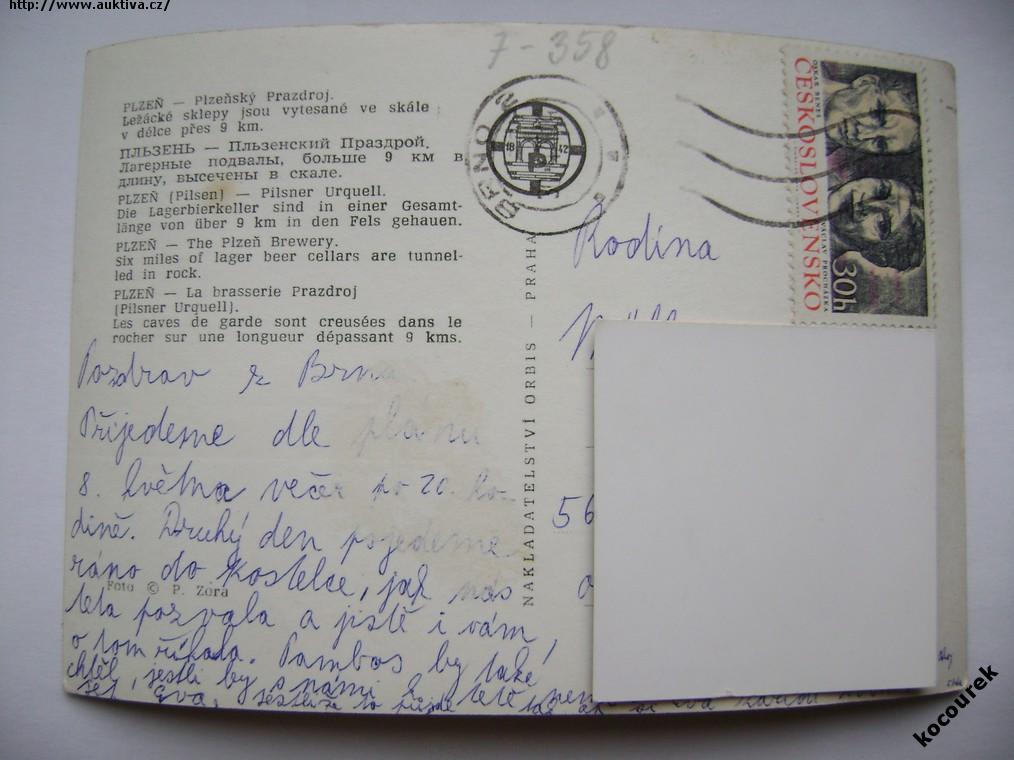 http://www.auktiva.cz/
7-358
PLZEŇ — Plzeňský Prazdroj.
Ležácké sklepy jsou vytesané ve skále
v délce přes 9 km.
ПЛЬЗЕНЬ — Пльзенский Праздрой.
Лагерные подвалы, больше 9 км в
длину, высечены в скале.
PLZEŇ (Pilsen) — Pilsner Urquell.
Die Lagerbierkeller sind in einer Gesamt-
länge von über 9 km in den Fels gehauen.
PLZEŇ — The Plzeň Brewery.
Six miles of lager beer cellars are tunnel-
led in rock.
PLZEŇ — La brasserie Prazdroj
(Pilsner Urquell).
Les caves de garde sont creusées dans le
rocher sur une longueur dépassant 9 kms.
Pozdrav z Brna
Přijedeme dle plánu
8. května večer po 20. ho-
dině. Druhý den pojedeme
ráno do Kostelce, jak nás
Foto © P. Zora
teta pozvala a jistě i vám,
o tom říkala. by také
chtěl, jestli by s námi
jet Eva,
NAKLADATELSTVÍ ORBIS — PRAHA
BRNO 2
18 42
P
OSKAR BENEŠ
VÁCLAV PROCHÁZKA
ČESKOSLOVENSKO
30h
Rodina
56
kocourek